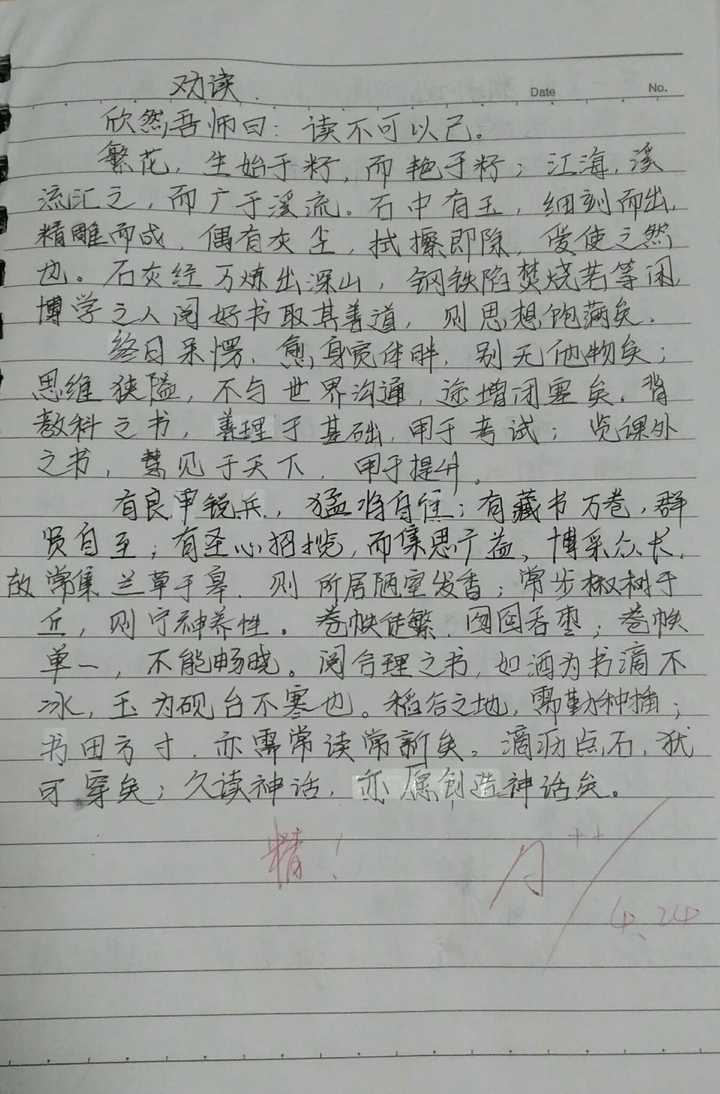 劝读.
Date No.
欣然吾师曰：读不可以已。
繁花，生始于籽，而艳于籽；江海，溪
流汇之，而广于溪流。石中有玉，细刻而出，
精雕而成，偶有灰尘，拭擦即除，使之然
也。石灰经万炼出深山，钢铁陷焚烧若等闲，
博学之人阅好书取其善道，则思想饱满矣.
终日呆愣，愈身宽体胖，别无他物矣；
思维狭隘，不与世界沟通，途增闭塞矣。背
教科之书，善理于基础，用于考试；览课外
之书，慧见于天下，用于提升。
有良甲锐兵，猛将自住；有藏书万卷，群
贤自至；有圣心招揽，而集思广益，博采众长，
故常集兰草于皋，则所居陋室发香；常步椒树于
丘，则宁神养性。卷帙徒繁，囫囵吞枣；卷帙
单一，不能畅晓。阅合理之书，如酒为书滴不
冰，玉为砚台不寒也。稻谷之地，需勤种插；
书田方寸，亦需常读常新矣。滴沥点石，犹
可穿矣；久读神话，亦愿创造神话矣。
精！
A++
4.24